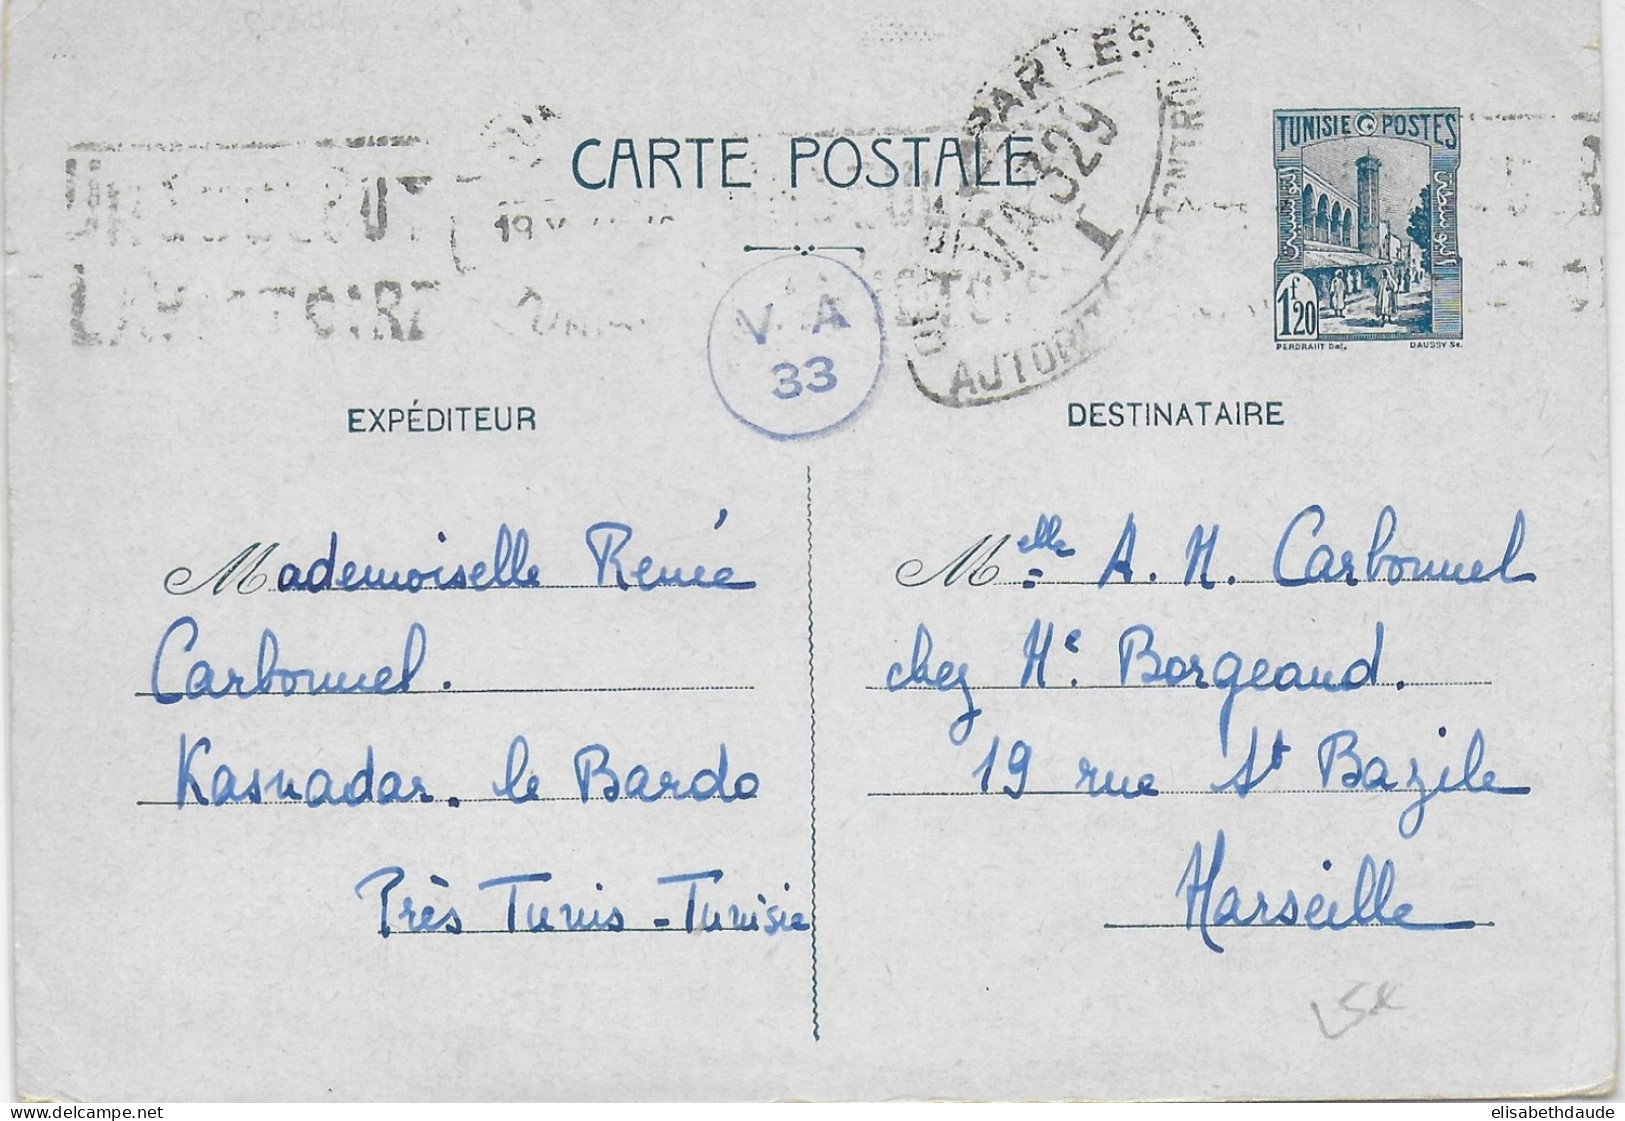 CARTE POSTALE
TUNISIE POSTES
1f20
PERDRAUT Del.
DAUSSY Sc.
PAR LES
VA 329
V A
33
EXPÉDITEUR
DESTINATAIRE
Mademoiselle Renée
Carbonnel.
Kasnadar. le Bardo
Près Tunis - Tunisie
Melle A. M. Carbonnel
chez Me. Borgeaud.
19 rue St Bazile
Marseille
elisabethdaude